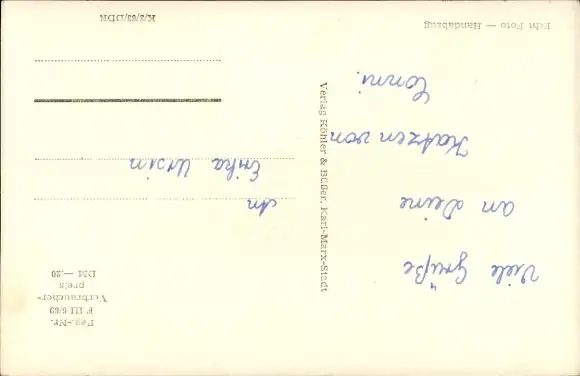 Echt Foto — Handabzug
Viele Grüße
an Deine
Katzen von
Conni.
Verlag Köhler & Büßer, Karl-Marx-Stadt
Reg.-Nr.
F III 6/69
Verbraucher-
preis
DM —.20
An
Erika Ursin
K/3/63/DDR